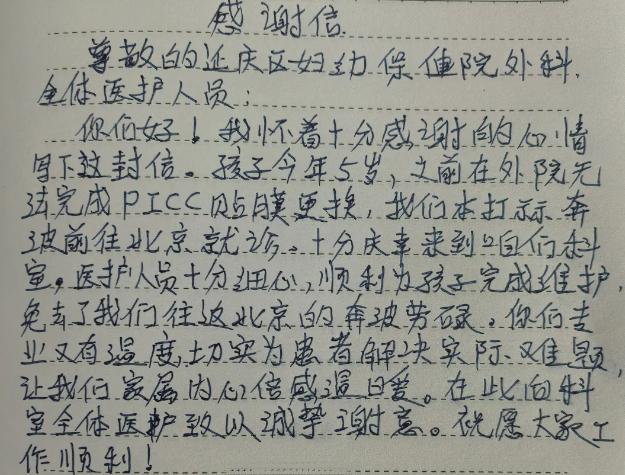 感谢信
尊敬的延庆区妇幼保健院外科
全体医护人员:
你们好!我怀着十分感谢的心情
写下这封信。孩子今年5岁,之前在外院无
法完成PICC贴膜更换,我们本打示奔
波前往北京就诊。十分庆幸来到咱们科
室,医护人员十分细心,顺利为孩子完成维护,
免去了我们往返北京的奔波劳碌。你们专
业又有温度,切实为患者解决实际难题,
让我们家属内心倍感温暖。在此向科
室全体医护致以诚挚谢意。祝愿大家工
作顺利!